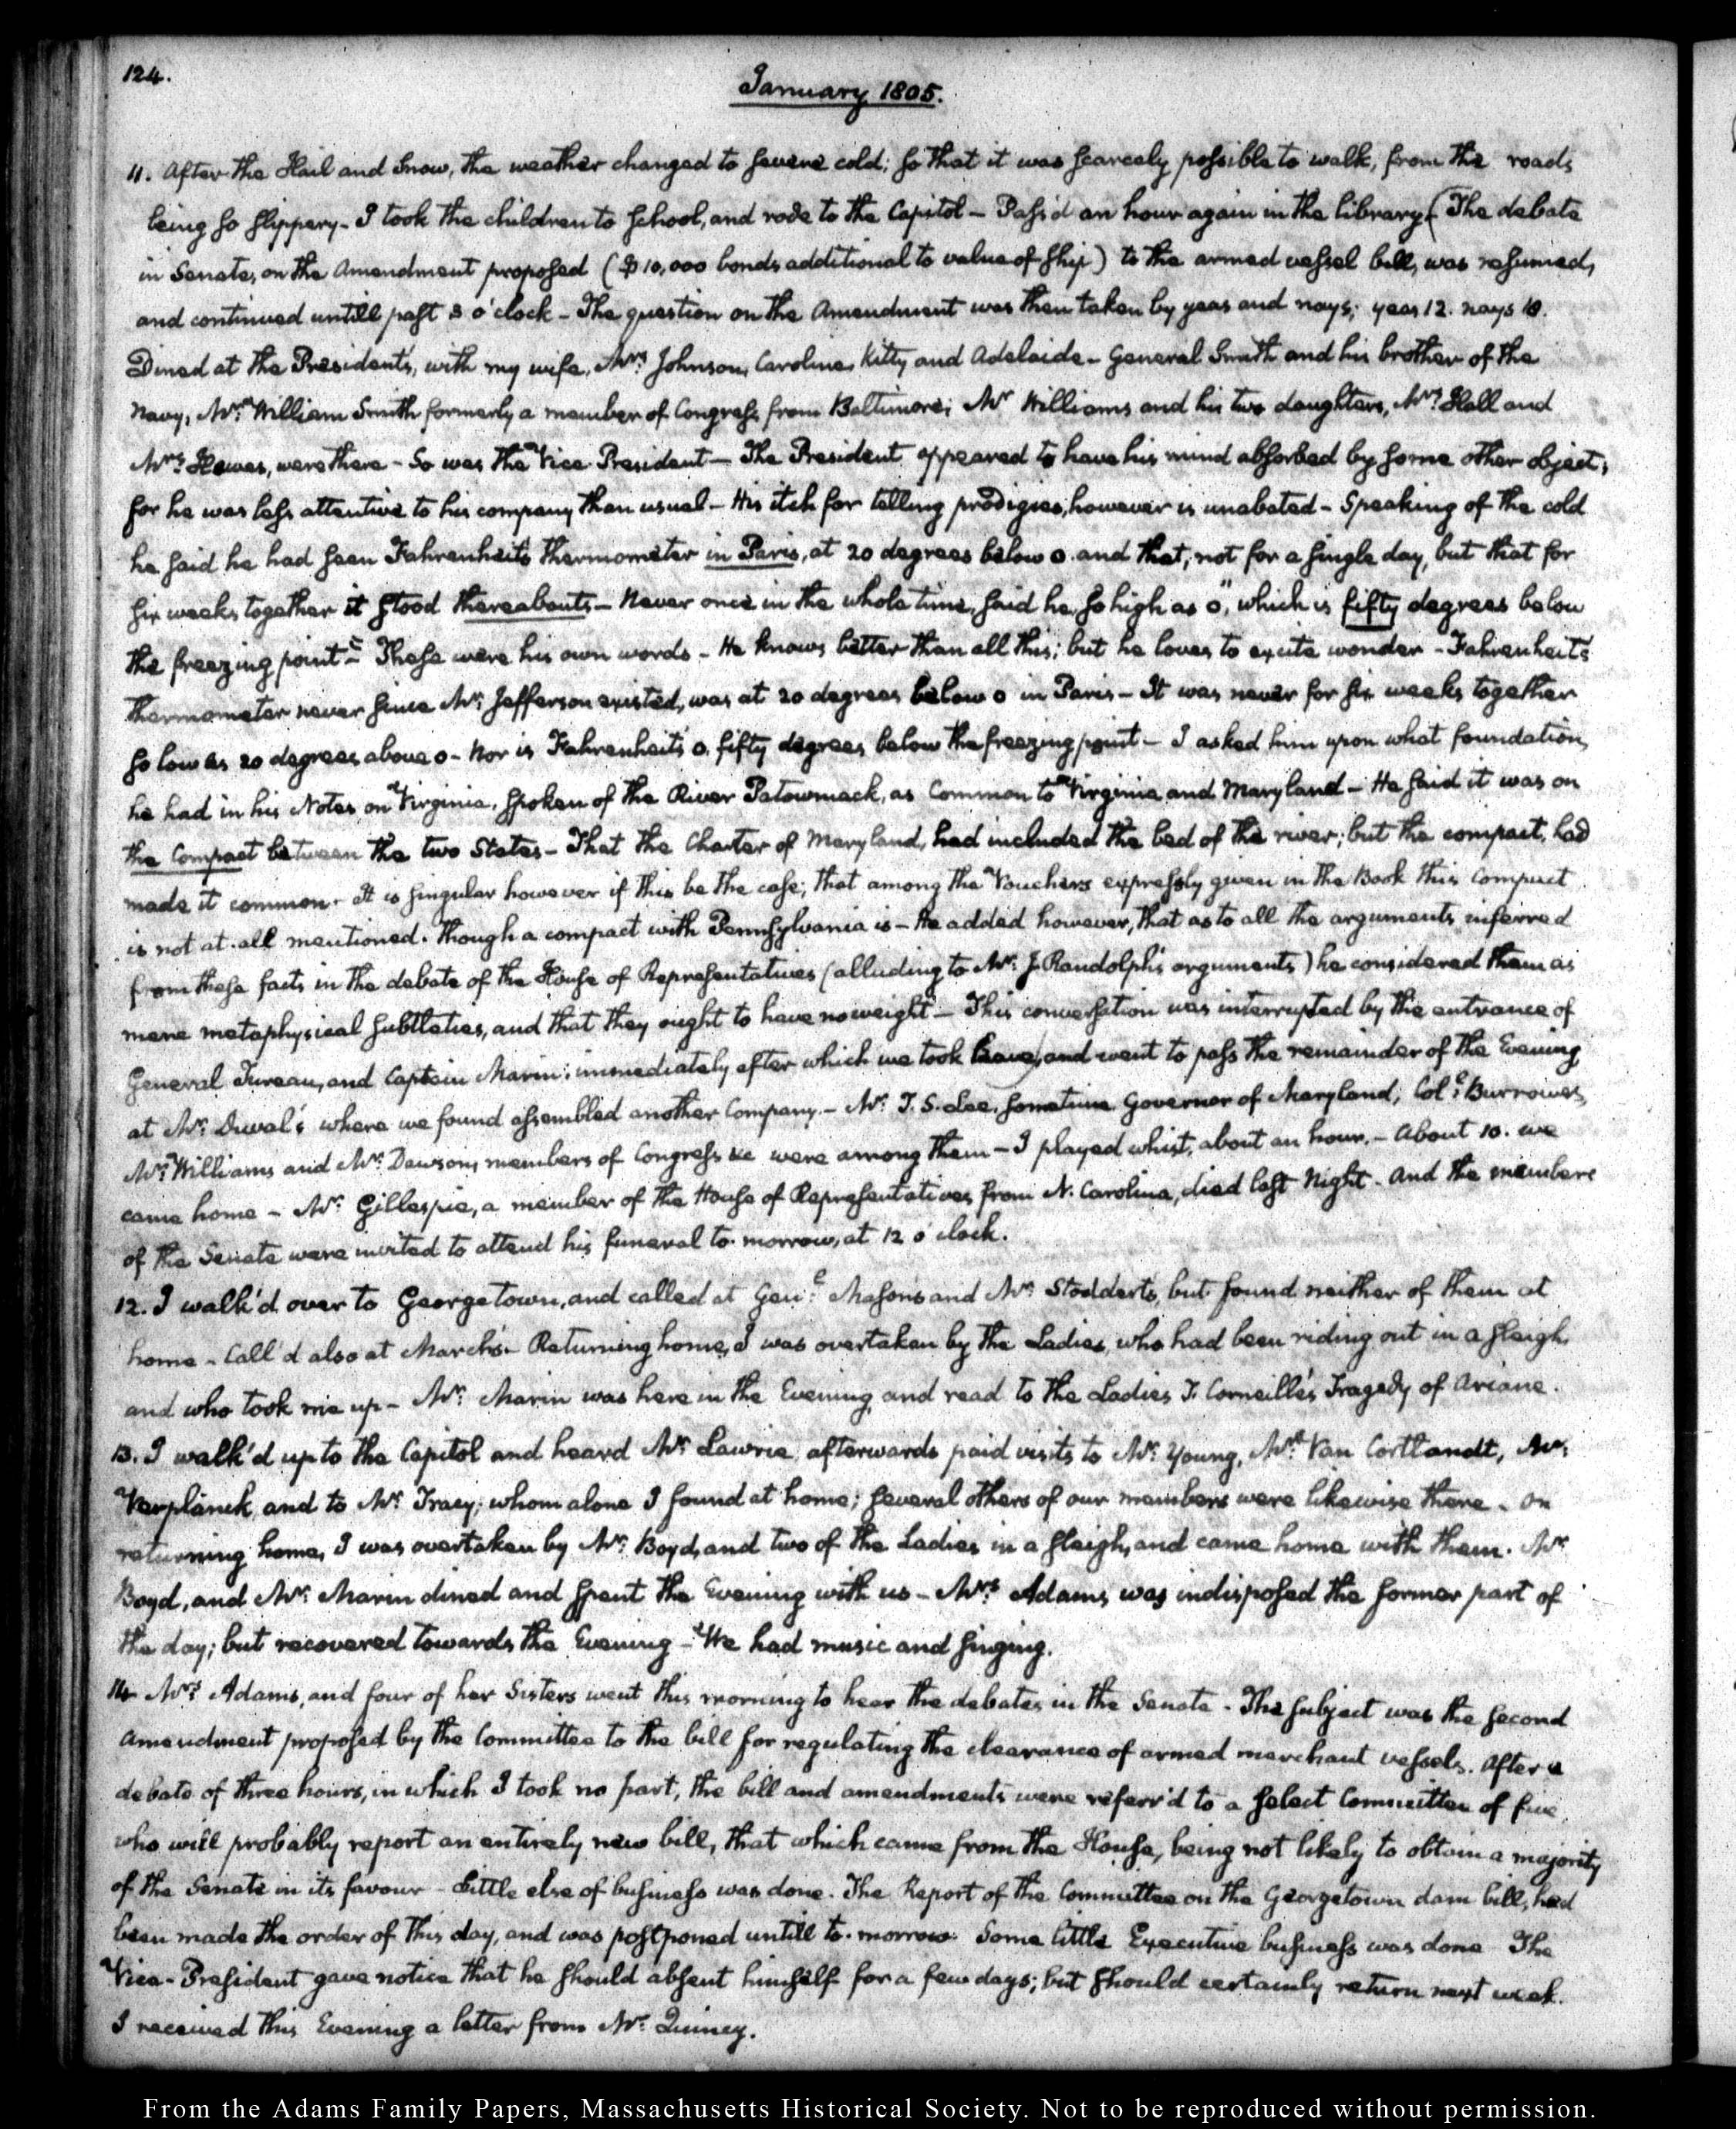 124.
January 1805.
11. After the Hail and Snow, the weather changed to severe cold; so that it was scarcely possible to walk, from the roads
being so slippery - I took the children to school, and rode to the Capitol - Pass'd an hour again in the library (The debate
in Senate, on the Amendment proposed ($10,000 bonds additional to value of ship) to the armed vessel bill, was resumed,
and continued untill past 3 o'clock - The question on the Amendment was then taken by yeas and nays; yeas 12. nays 18.
Dined at the President's, with my wife, Mrs. Johnson, Caroline, Kitty and Adelaide - General Smith and his brother of the
Navy, Mr. William Smith formerly a member of Congress from Baltimore; Mr. Williams and his two daughters, Mrs. Hall and
Mrs. Hewes, were there - So was the Vice President - The President appeared to have his mind absorbed by some other object;
for he was less attentive to his company than usual - His itch for telling prodigies, however is unabated - Speaking of the cold
he said he had seen Fahrenheit's thermometer in Paris, at 20 degrees below 0. and that, not for a single day, but that for
six weeks together it stood thereabouts - Never once in the whole time, said he, so high as 0," which is fifty degrees below
the freezing point" - These were his own words - He knows better than all this; but he loves to excite wonder - Fahrenheit's
thermometer never since Mr. Jefferson existed, was at 20 degrees below 0 in Paris - It was never for six weeks together
so low as 20 degrees above 0 - Nor is Fahrenheit's 0. fifty degrees below the freezing point - I asked him upon what foundation,
he had in his Notes on Virginia, spoken of the River Patowmack, as Common to Virginia and Maryland - He said it was on
the Compact between the two States - That the Charter of Maryland, had included the bed of the river; but the compact, had
made it common - It is singular however if this be the case; that among the Vouchers expressly given in the Book this compact
is not at all mentioned. though a compact with Pennsylvania is - He added however, that as to all the arguments inferred
from these facts in the debate of the House of Representatives (alluding to Mr. J. Randolph's arguments) he considered them as
mere metaphysical subtleties, and that they ought to have no weight - This conversation was interrupted by the entrance of
General Tureau, and Captain Marin; immediately after which we took leave, and went to pass the remainder of the Evening
at Mr. Duval's where we found assembled another Company. - Mr. T. S. Lee, sometime Governor of Maryland; Col. Burrowes,
Mr. Williams and Mr. Dawson, members of Congress &c were among them - I played whist, about an hour. - About 10. we
came home - Mr. Gillespie, a member of the House of Representatives from N. Carolina, died last Night - And the members
of the Senate were invited to attend his funeral to-morrow, at 12 o'clock.
12. I walk'd over to Georgetown, and called at Genl. Mason's and Mr. Stoddert's, but found neither of them at
home - Call'd also at March's - Returning home, I was overtaken by the Ladies, who had been riding out in a sleigh,
and who took me up - Mr. Marin was here in the Evening, and read to the Ladies T. Corneille's Tragedy of Ariane.
13. I walk'd up to the Capitol and heard Mr. Lawrie, afterwards paid visits to Mr. Young, Mr. Van Cortlandt, Mr.
Verplanck, and to Mr. Tracy; whom alone I found at home; several others of our members were likewise there. On
returning home, I was overtaken by Mr. Boyd, and two of the Ladies in a sleigh, and came home with them. Mr.
Boyd, and Mr. Marin dined and spent the Evening with us - Mrs. Adams, was indisposed the former part of
the day; but recovered towards the Evening - We had music and singing.
14. Mrs. Adams, and four of her Sisters went this morning to hear the debates in the Senate - The subject was the second
amendment proposed by the Committee to the bill for regulating the clearance of armed merchant vessels. After a
debate of three hours, in which I took no part, the bill and amendments were referr'd to a select Committee of five
who will probably report an entirely new bill, that which came from the House, being not likely to obtain a majority
of the Senate in its favour - Little else of business was done. The Report of the Committee on the Georgetown dam bill, had
been made the order of this day, and was postponed untill to-morrow. Some little Executive business was done - The
Vice-President gave notice that he should absent himself for a few days; but should certainly return next week.
I received this Evening a letter from Mr. Quincy.
From the Adams Family Papers, Massachusetts Historical Society. Not to be reproduced without permission.